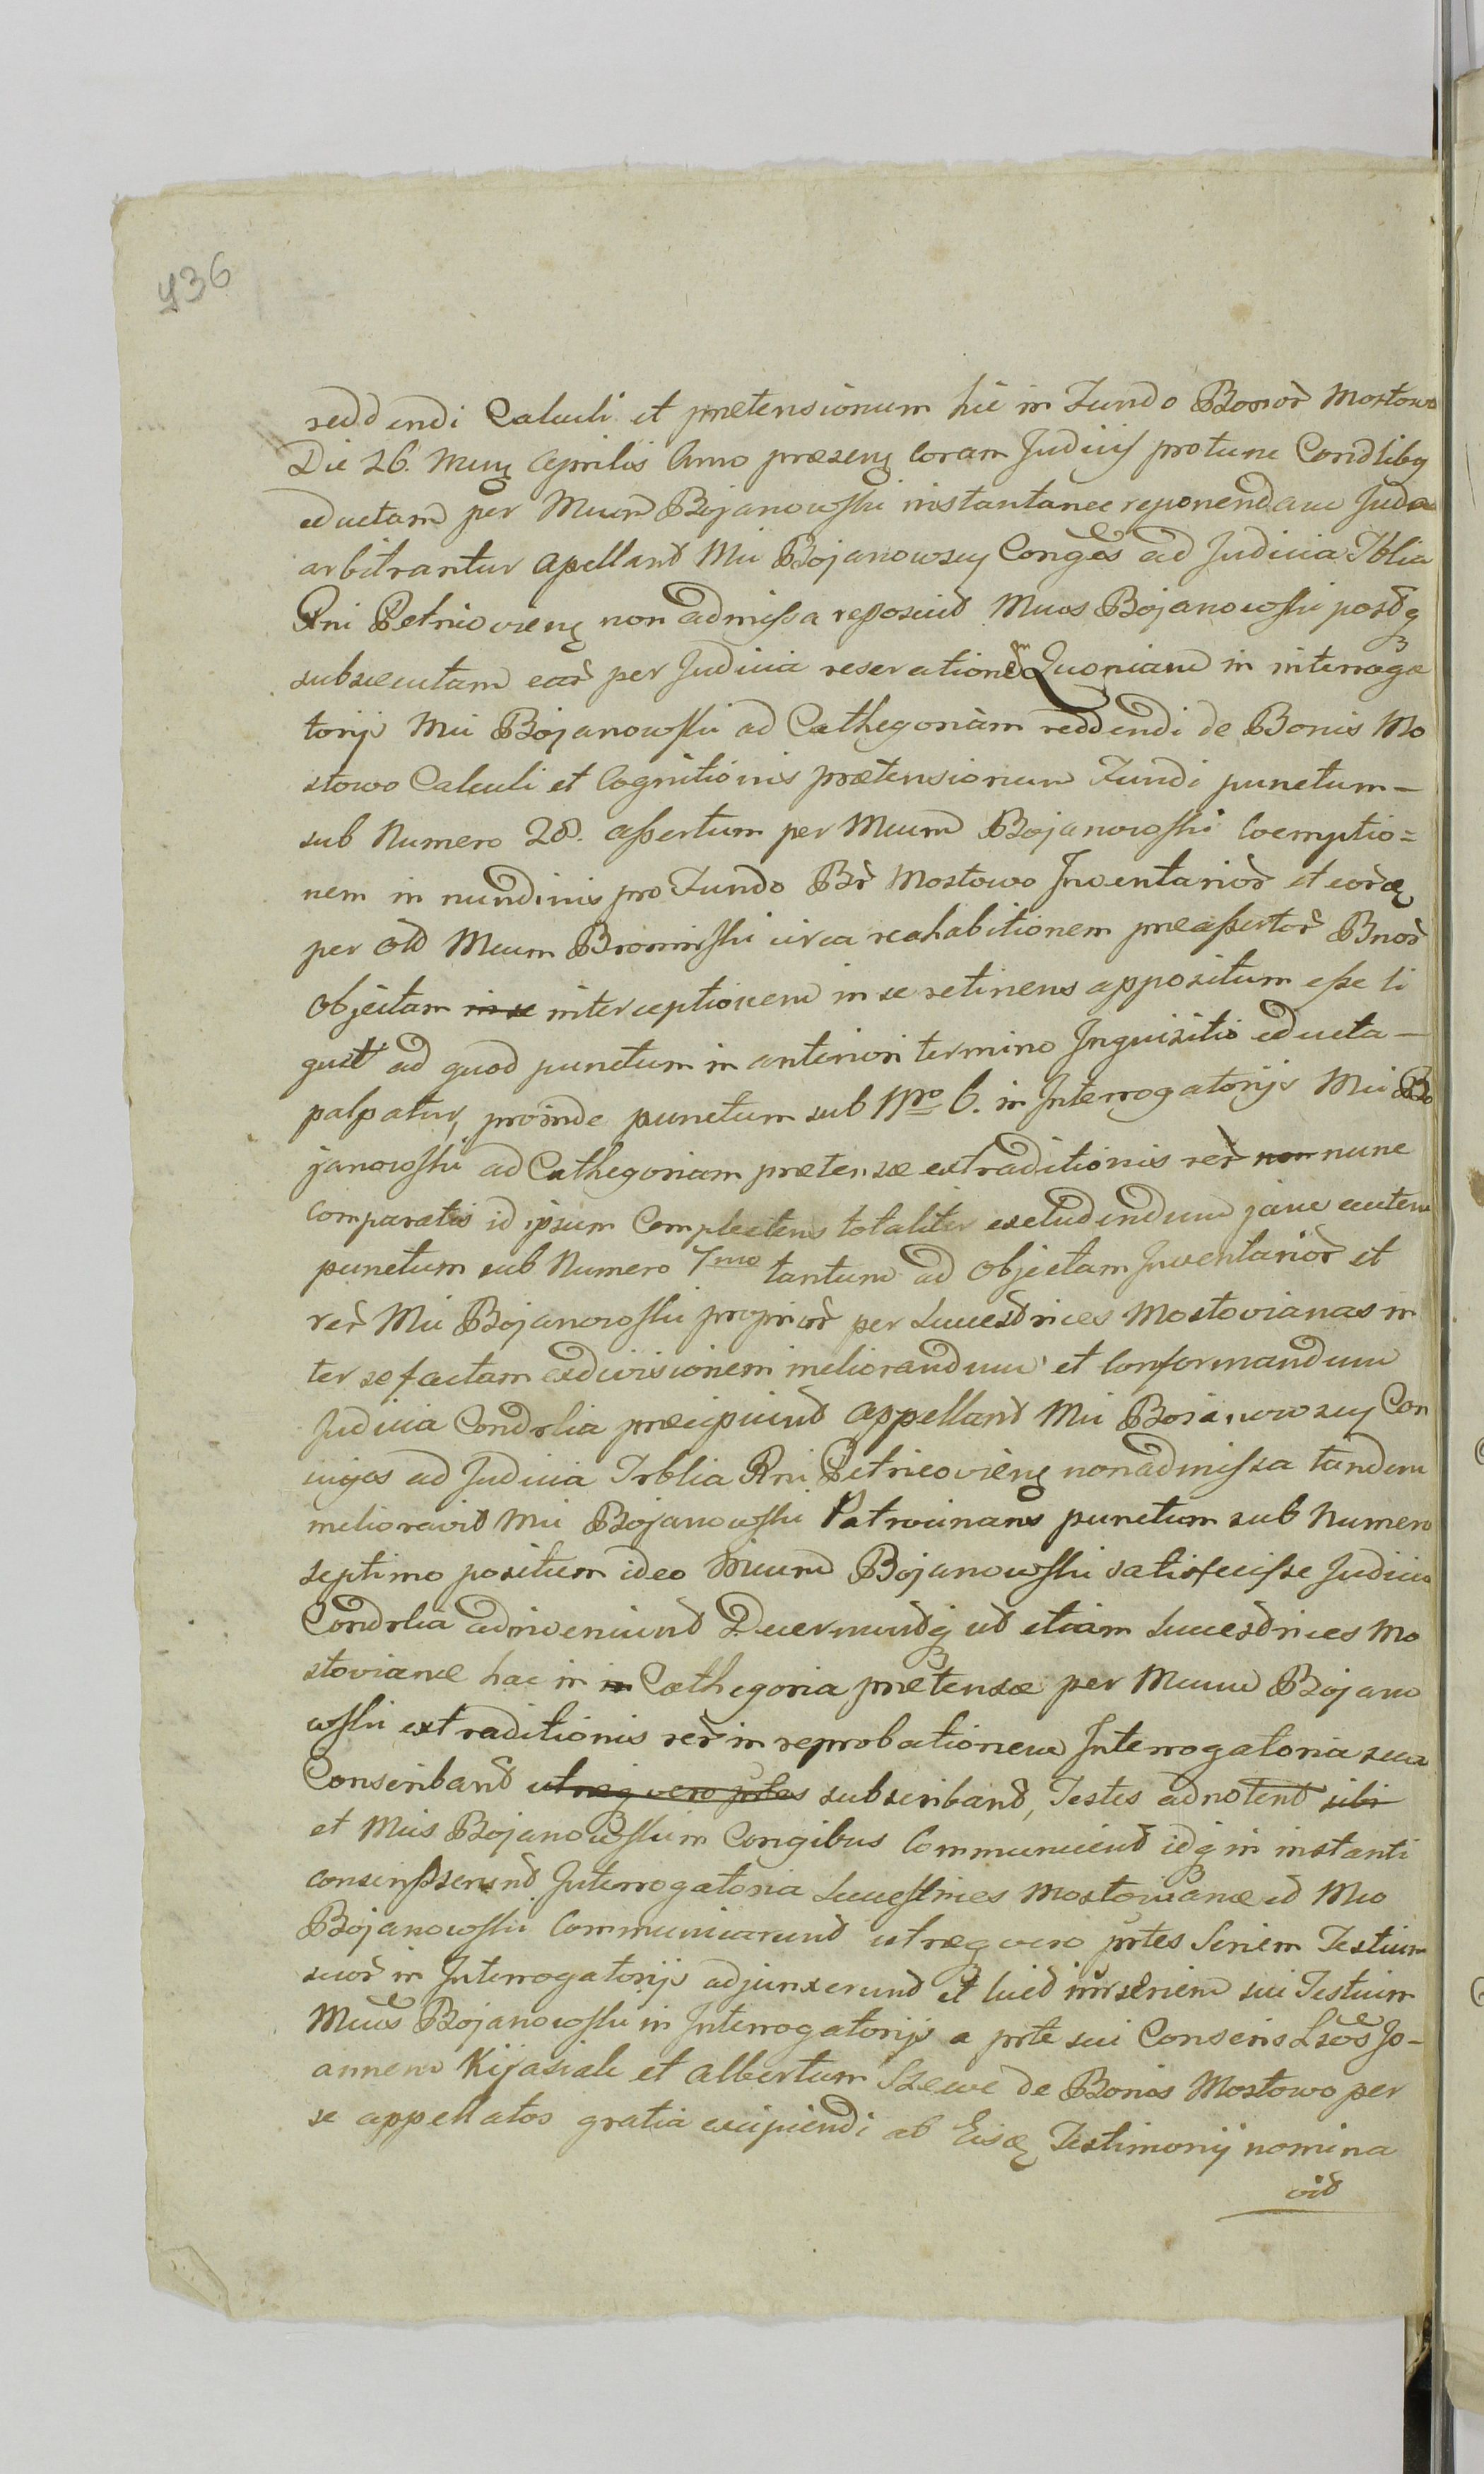 436
reddendi Calculi et prætensionum hic in Fundo Bonor̃ Mostowo
Die 26. Mens Aprilis Anno præsens Coram Judicijs protunc Condlibus
eductam per Mcum Bojanowski instantanee reponendam Judicia
arbitrantur Apelland Mci Bojanowscy Conges ad Judicia Tblia
Rni Petricoviens non admissa reposuid Mcus Bojanowski postq3
subsecutam ear̃ per Judicia reservationem Quoniam in interroga
torijs Mci Bojanowski ad Cathegoriam reddendi de Bonis Mo
stowo Calculi et Cognitionis prætensionum Fundi punctum –
sub Numero 28. assertum per Mcum Bojanowski Coemptio=
nem in nundinis pro Fundo Br̃ Mostowo Inventarior̃ et eor̃dem
per olim Mcum Bronisski circa reahabitionem præassertor̃ Bnor̃
Objectam in se interceptionem in se retinens appositum esse li
quet ad quod punctum in anteriori termino Inquisitio educta –
palpatur, proinde punctum sub Nro 6. in Interrogatorijs Mci Bo
janowski ad Cathegoriam prætensæ extraditionis rer̃ non nunc
Comparatis id ipsum Complectens totaliter excludendum jam autem
punctum sub Numero 7mo tantum ad Objectam Inventarior̃ et
rer̃ Mci Bojanowski proprior̃ per Successtrices Mostovianas in
ter se factam exdivisionem meliorandum et Conformandum
Judicia Condrlia præcipiund Appelland Mci Bojanowscy Con
iuges ad Judicia Trblia Rni Petricoviens non admissa tandem
melioravid Mci Bojanowski Patrocinans punctum sub Numero
septimo positum ideo Mcum Bojanowski satisfecisse Judicia
Condrlia adinveniund Decernundq3 ud etiam Successtrices Mo
stovianæ hac in in Cathegoria prætensæ per Mcum Bojano
wski extraditionis rer̃ in reprobationem Interrogatoria sua
Conscriband utræq3 vero prtes subscriband, Testes adnotend sibi
et Mcis Bojanowskim Congibus Communicend idq3 in instanti
conscripserund Interrogatoria Successtrices Mostovianæ ed Mco
Bojanowski Communicarund utræq3 vero prtes Seriem Testium
suor̃ in Interrogatorijs adjunxerund et licet in seriem sui Testium
Mcus Bojanowski in Interrogatorijs a prte sui Conscris Lsos Jo-
annem Kijasiak et Albertum Szewc de Bonis Mostowo per
se appellatos gratia excipiendi ab Eisdem Testimonij nomina
vid